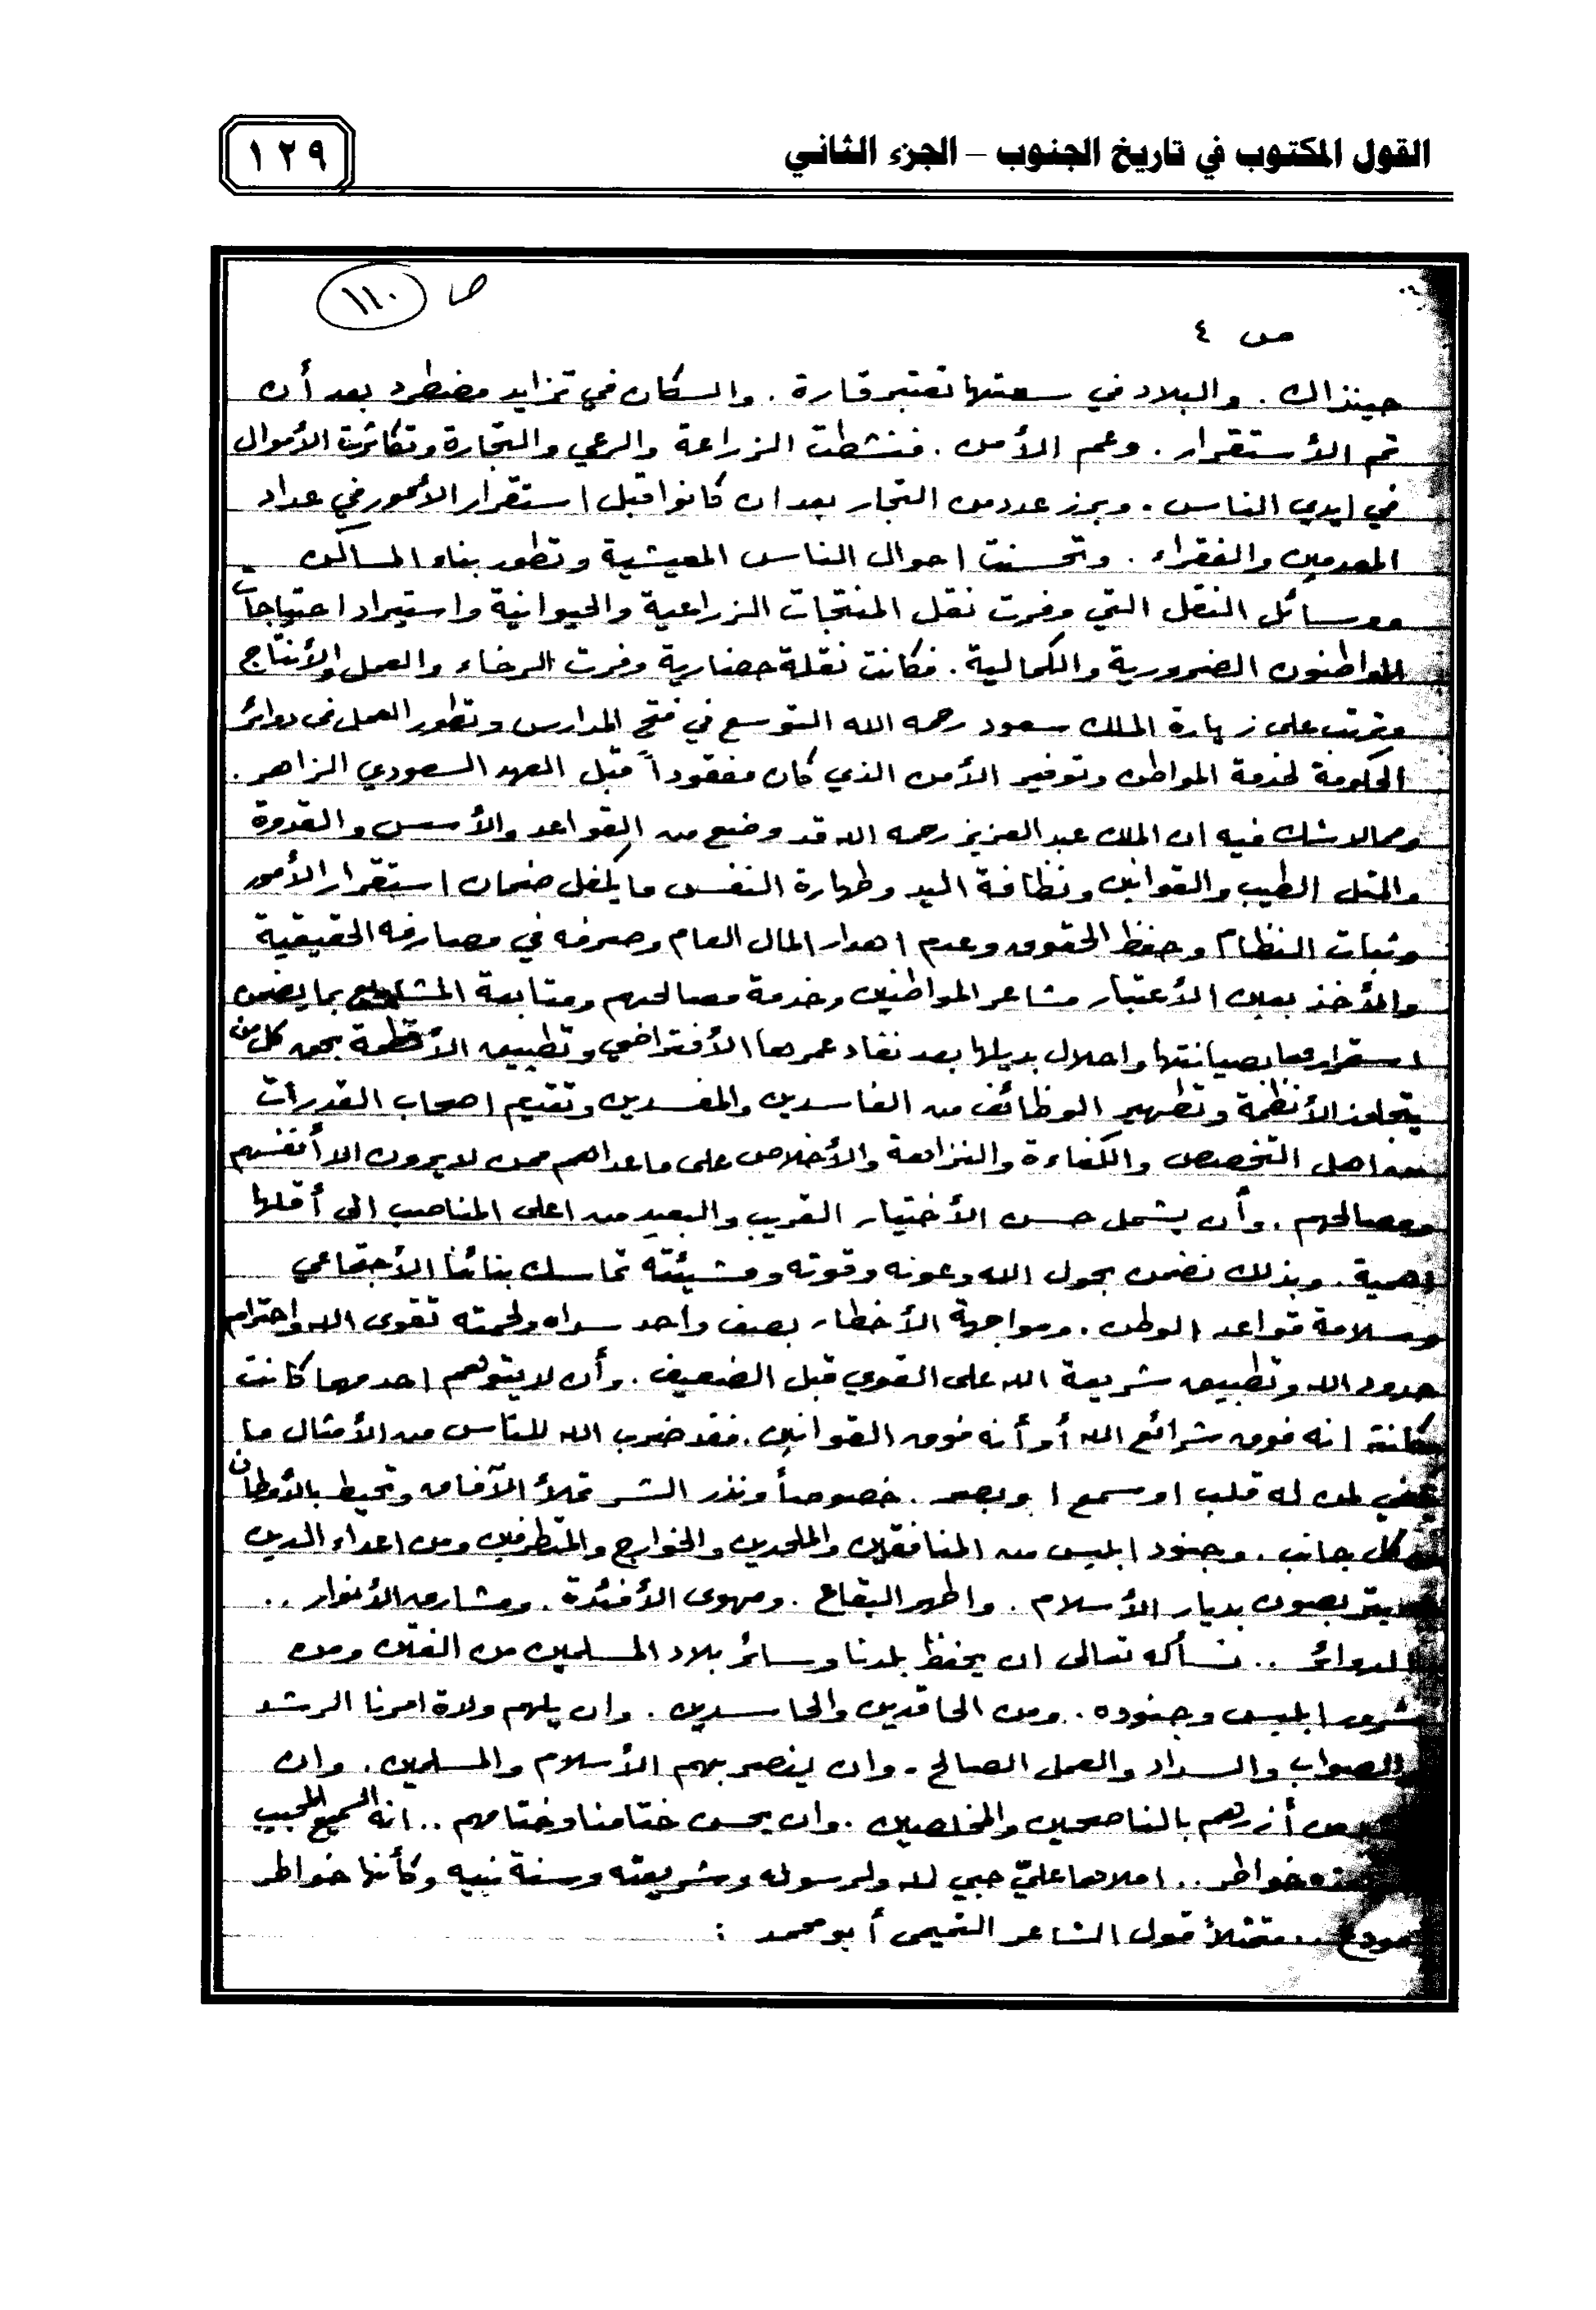 القول المكتوب في تاريخ الجنوب – الجزء الثاني
١٢٩
ص ١١٠
ص ٤
حينذاك . والبلاد في سعتها تعتبر قارة . والسكان في تزايد مضطرد بعد أن
تم الأستقرار . وعم الأمن . فنشطت الزراعة والرعي والتجارة وتكاثرت الأموال
في ايدي الناس . وبرز عدد من التجار بعد ان كانوا قبل استقرار الأمور في عداد
المعدمين والفقراء . وتحسنت احوال الناس المعيشية وتطور بناء المساكن
ووسائل النقل التي وفرت نقل المنتجات الزراعية والحيوانية واستيراد احتياجات
المواطنون الضرورية والكمالية . فكانت نقلة حضارية وفرت الرخاء والعمل والأنتاج
وترتب على زيارة الملك سعود رحمه الله التوسع في فتح المدارس وتطور العمل في دوائر
الحكومة لخدمة المواطن وتوفير الأمن الذي كان مفقوداً قبل العهد السعودي الزاهر .
ومما لا شك فيه ان الملك عبد العزيز رحمه الله قد وضع من القواعد والأسس والقدوة
والمثل الطيب والقوانين ونظافة اليد وطهارة النفس ما يكفل ضمان استقرار الأمور
وثبات النظام وحفظ الحقوق وعدم اهدار المال العام وصرفه في مصارفه الحقيقية
والأخذ بعين الأعتبار مشاعر المواطنين وخدمة مصالحهم ومتابعة المشاريع بما يضمن
استقرارها بصيانتها واحلال بديلها بعد نفاد عمرها الأفتراضي وتطبيق الأنظمة بحق كل من
يتجاوز الأنظمة وتطهير الوظائف من الفاسدين والمفسدين وتقديم اصحاب القدرات
من اهل التخصص والكفاءة والنزاهة والأخلاص على ما عداهم ممن لا يرون الا أنفسهم
ومصالحهم . وأن يشمل حسن الأختيار القريب والبعيد من اعلى المناصب الى أقلها
اهمية . وبذلك نضمن بحول الله وعونه وقوته ومشيئته تماسك بنائنا الأجتماعي
وسلامة قواعد الوطن . ومواجهة الأخطار بصف واحد سداه ولحمته تقوى الله واحترام
حدود الله وتطبيق شريعة الله على القوي قبل الضعيف . وأن لا يتوهم احد مهما كانت
مكانته انه فوق شرائع الله أو أنه فوق القوانين . فقد ضرب الله للناس من الأمثال ما
يكفي لمن له قلب او سمع او بصر . خصوصاً ونذر الشر تملأ الآفاق وتحيط بالأوطان
من كل جانب . وجنود ابليس من المنافقين والملحدين والخوارج والمتطرفين ومن اعداء الدين
يتربصون بديار الأسلام . واطهر البقاع . ومهوى الأفئدة . ومشارق الأنوار ..
الدوائر .. نسأله تعالى ان يحفظ بلدنا وسائر بلاد المسلمين من الفتن ومن
شرور ابليس وجنوده . ومن الحاقدين والحاسدين . وان يلهم ولاة امرنا الرشد
والصواب والسداد والعمل الصالح . وان ينصر بهم الأسلام والمسلمين . وان
أزرهم بالناصحين والمخلصين . وان يحسن ختامنا وختامهم .. انه السميع المجيب
هذه خواطر .. املاها عليّ حبي لله ولرسوله وشريعته وسنة نبيه وكأنها خواطر
مودع .. متمثلاً قول الشاعر التميمي أبو محمد :